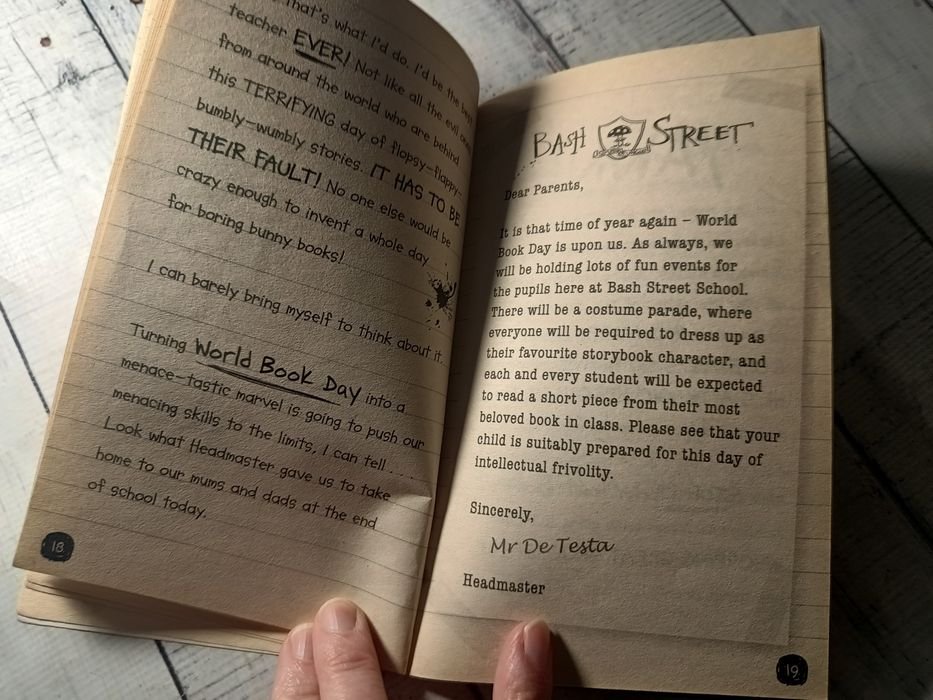 that's what I'd do. I'd be the best
teacher EVER! Not like all the evil
from around the world who are behind
this TERRIFYING day of flopsy-flappy-
bumbly-wumbly stories. IT HAS TO BE
THEIR FAULT! No one else would be
crazy enough to invent a whole day
for boring bunny books!
I can barely bring myself to think about it.
Turning World Book Day into a
menace-tastic marvel is going to push our
menacing skills to the limits, I can tell ...
Look what Headmaster gave us to take
home to our mums and dads at the end
of school today.
18
BASH STREET
Dear Parents,
It is that time of year again – World
Book Day is upon us. As always, we
will be holding lots of fun events for
the pupils here at Bash Street School.
There will be a costume parade, where
everyone will be required to dress up as
their favourite storybook character, and
each and every student will be expected
to read a short piece from their most
beloved book in class. Please see that your
child is suitably prepared for this day of
intellectual frivolity.
Sincerely,
Mr De Testa
Headmaster
19